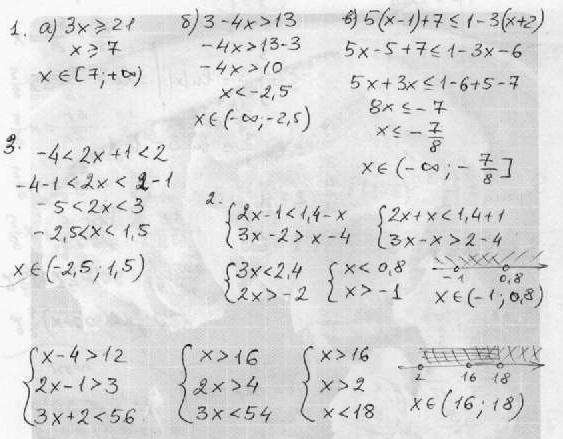 1. а) 3x ≥ 21
x ≥ 7
x ∈ [7; +∞)
б) 3 - 4x > 13
-4x > 13 - 3
-4x > 10
x < -2,5
x ∈ (-∞; -2,5)
в) 5(x-1)+7 ≤ 1-3(x+2)
5x - 5 + 7 ≤ 1 - 3x - 6
5x + 3x ≤ 1 - 6 + 5 - 7
8x ≤ -7
x ≤ -7/8
x ∈ (-∞; -7/8]
3.
-4 < 2x + 1 < 2
-4-1 < 2x < 2-1
-5 < 2x < 3
-2,5 < x < 1,5
x ∈ (-2,5; 1,5)
2.
{2x - 1 < 1,4 - x
3x - 2 > x - 4
{2x + x < 1,4 + 1
3x - x > 2 - 4
{3x < 2,4
2x > -2
{x < 0,8
x > -1
-1 0,8
x ∈ (-1; 0,8)
{x - 4 > 12
2x - 1 > 3
3x + 2 < 56
{x > 16
2x > 4
3x < 54
{x > 16
x > 2
x < 18
2 16 18
x ∈ (16; 18)